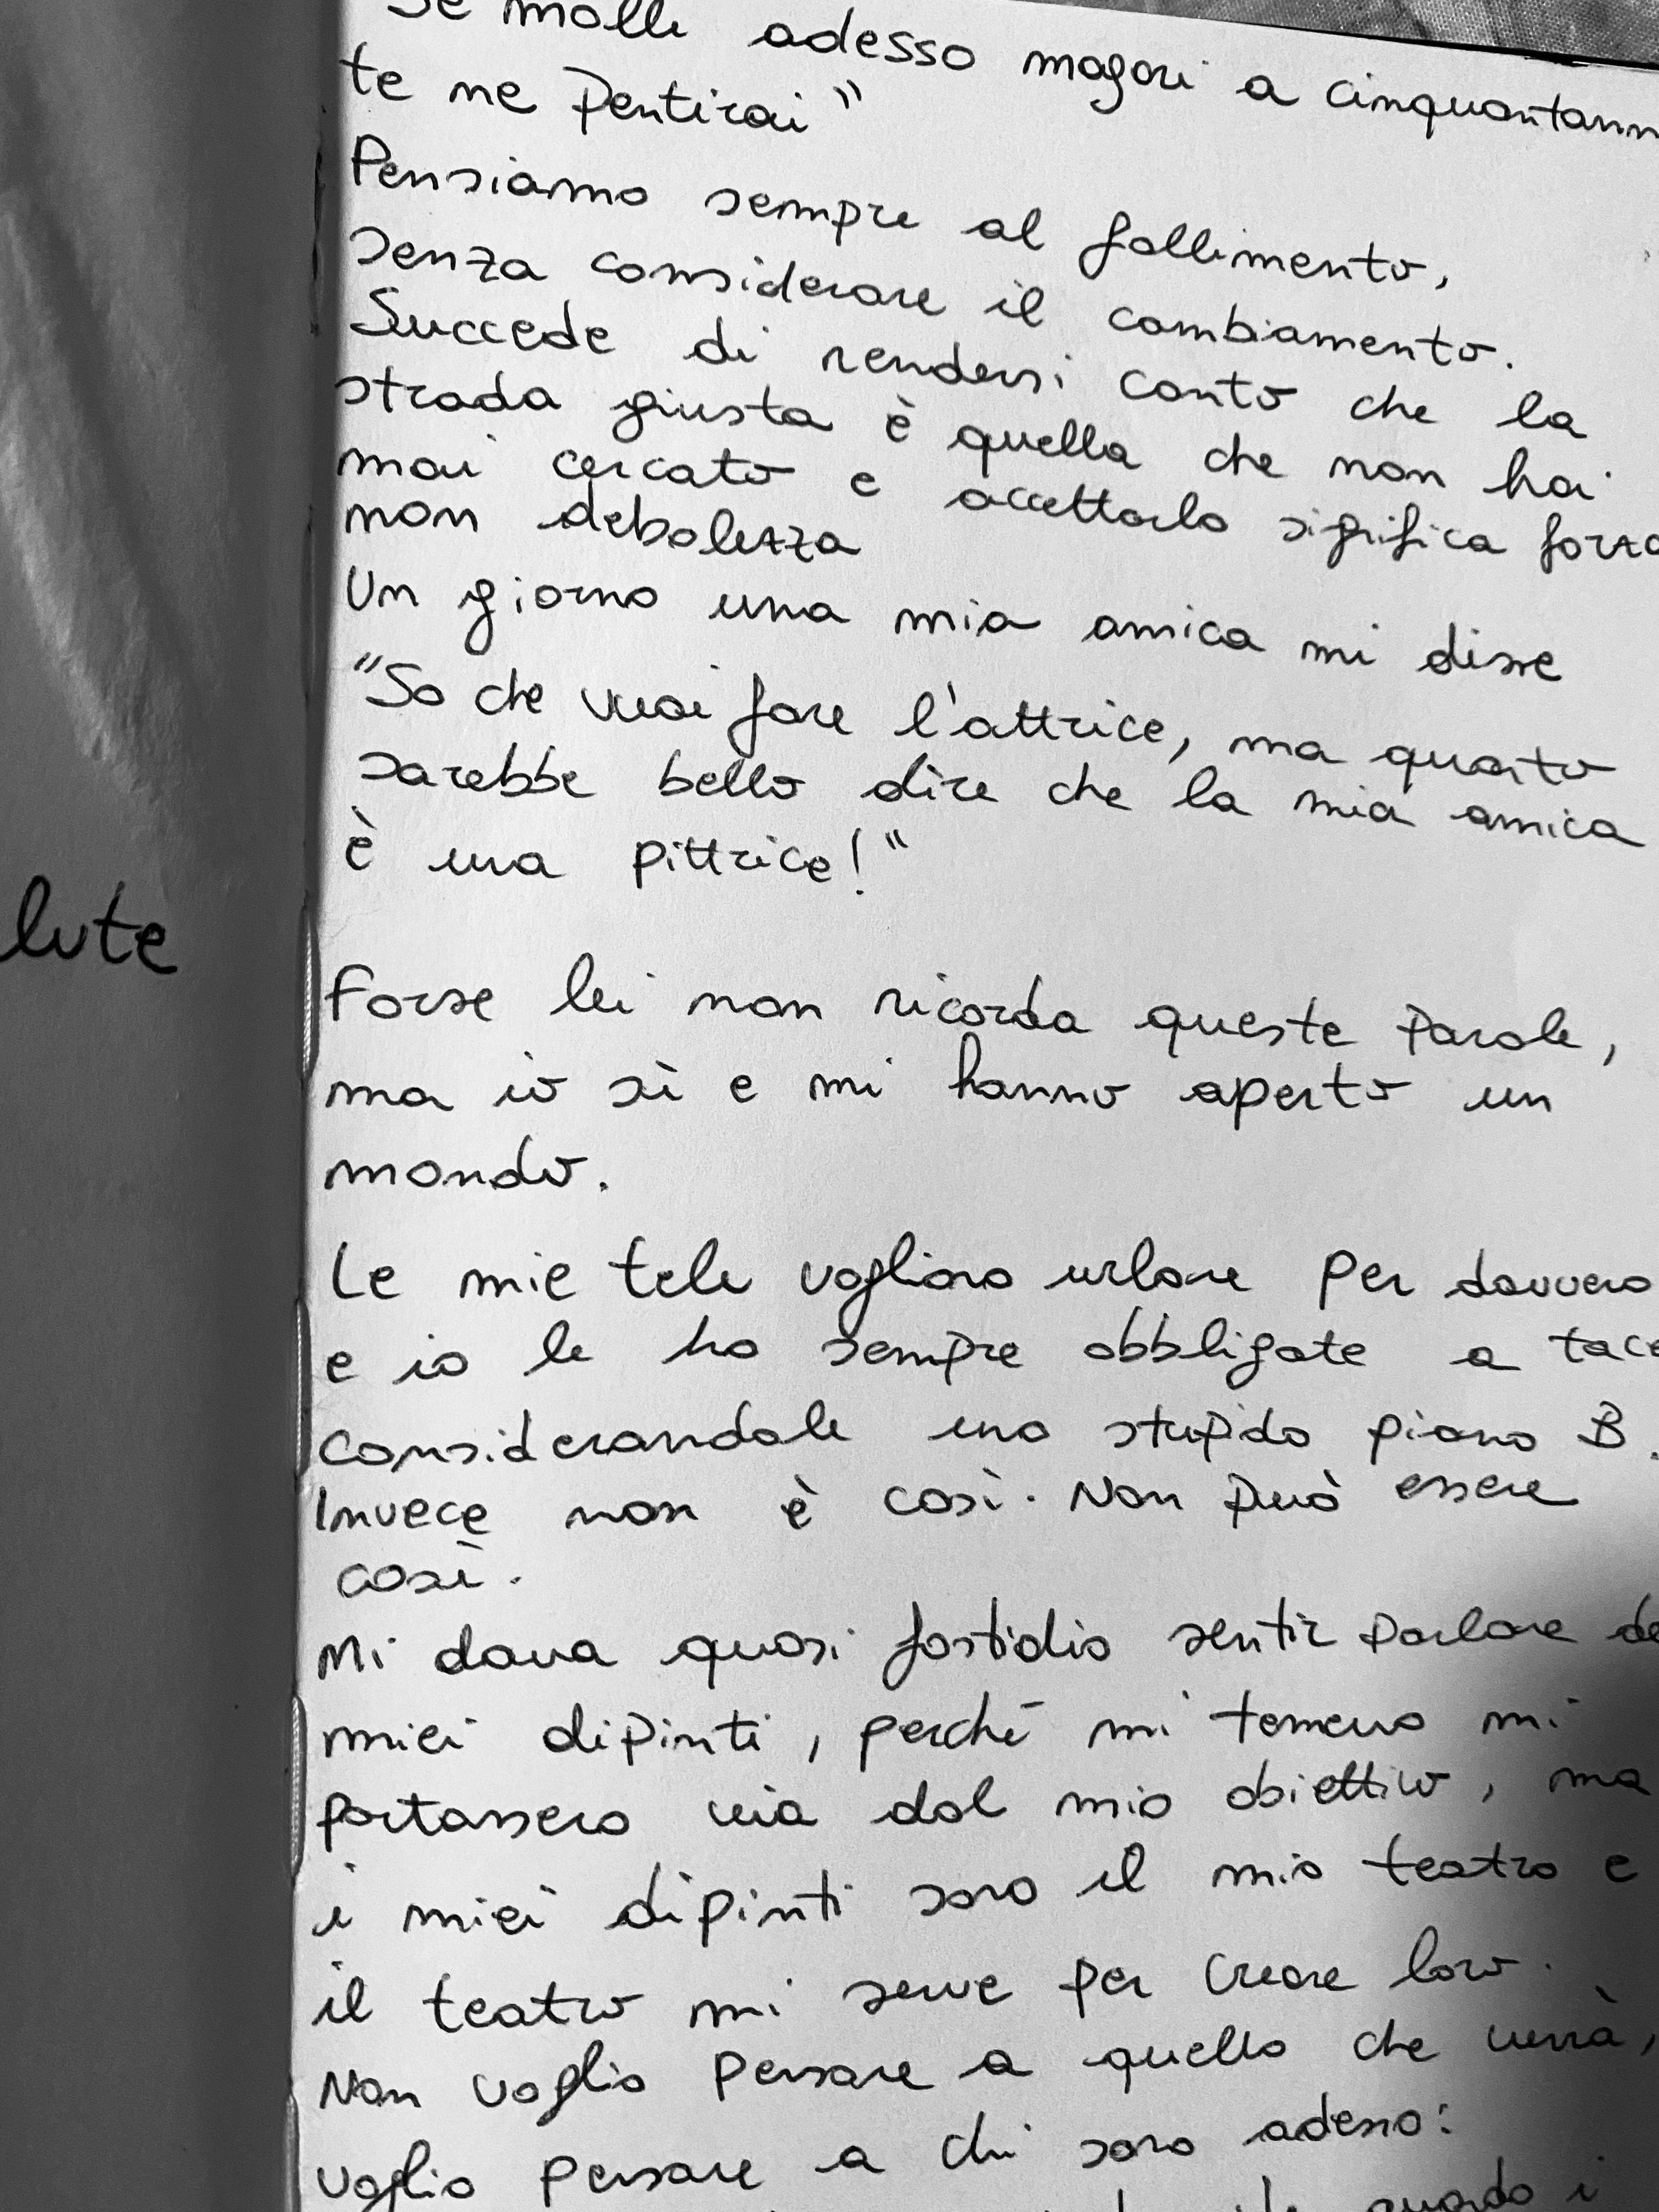 Se molli adesso magari a cinquantann
te ne pentirai"
Pensiamo sempre al fallimento,
senza considerare il cambiamento.
Succede di rendersi conto che la
strada giusta è quella che non hai
mai cercato e accettarlo significa forza
non debolezza
Un giorno una mia amica mi disse
"So che vuoi fare l'attrice, ma quanto
sarebbe bello dire che la mia amica
è una pittrice!"
lute
Forse lei non ricorda queste parole,
ma io sì e mi hanno aperto un
mondo.
Le mie tele vogliono urlare per davvero
e io le ho sempre obbligate a tace
considerandole uno stupido piano B.
Invece non è così. Non può essere
così.
Mi dava quasi fastidio sentir parlare de
miei dipinti, perché mi temevo mi
portassero via dal mio obiettivo, ma
i miei dipinti sono il mio teatro e
il teatro mi serve per creare loro.
Non voglio pensare a quello che verrà,
voglio pensare a chi sono adesso:
quando i